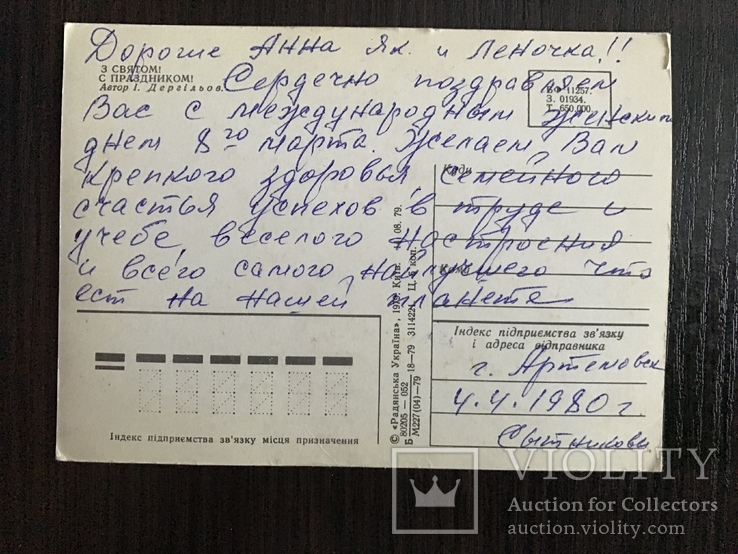 Дорогие Анна Як. и Леночка!!
З СВЯТОМ!
С ПРАЗДНИКОМ!
Автор І. Дергільов.
БФ 11257.
З. 01934.
Т. 650 000.
Сердечно поздравляем
Вас с международным женским
днем 8го марта. Желаем Вам
крепкого здоровья семейного
счастья успехов в труде и
учебе, веселого настроения
и всего самого найлучшего что
ест на нашей планете
Куди
Кому
Індекс підприємства зв'язку
і адреса відправника
г. Артемовск
4.4.1980 г
Сытниковы
Індекс підприємства зв'язку місця призначення
© «Радянська Україна», 1979. Київ. 08. 79.
Б 80205—052 18—79 3114221. Ц. 4 коп.
М227(04)—79
VIOLITY
Auction for Collectors
auction.violity.com